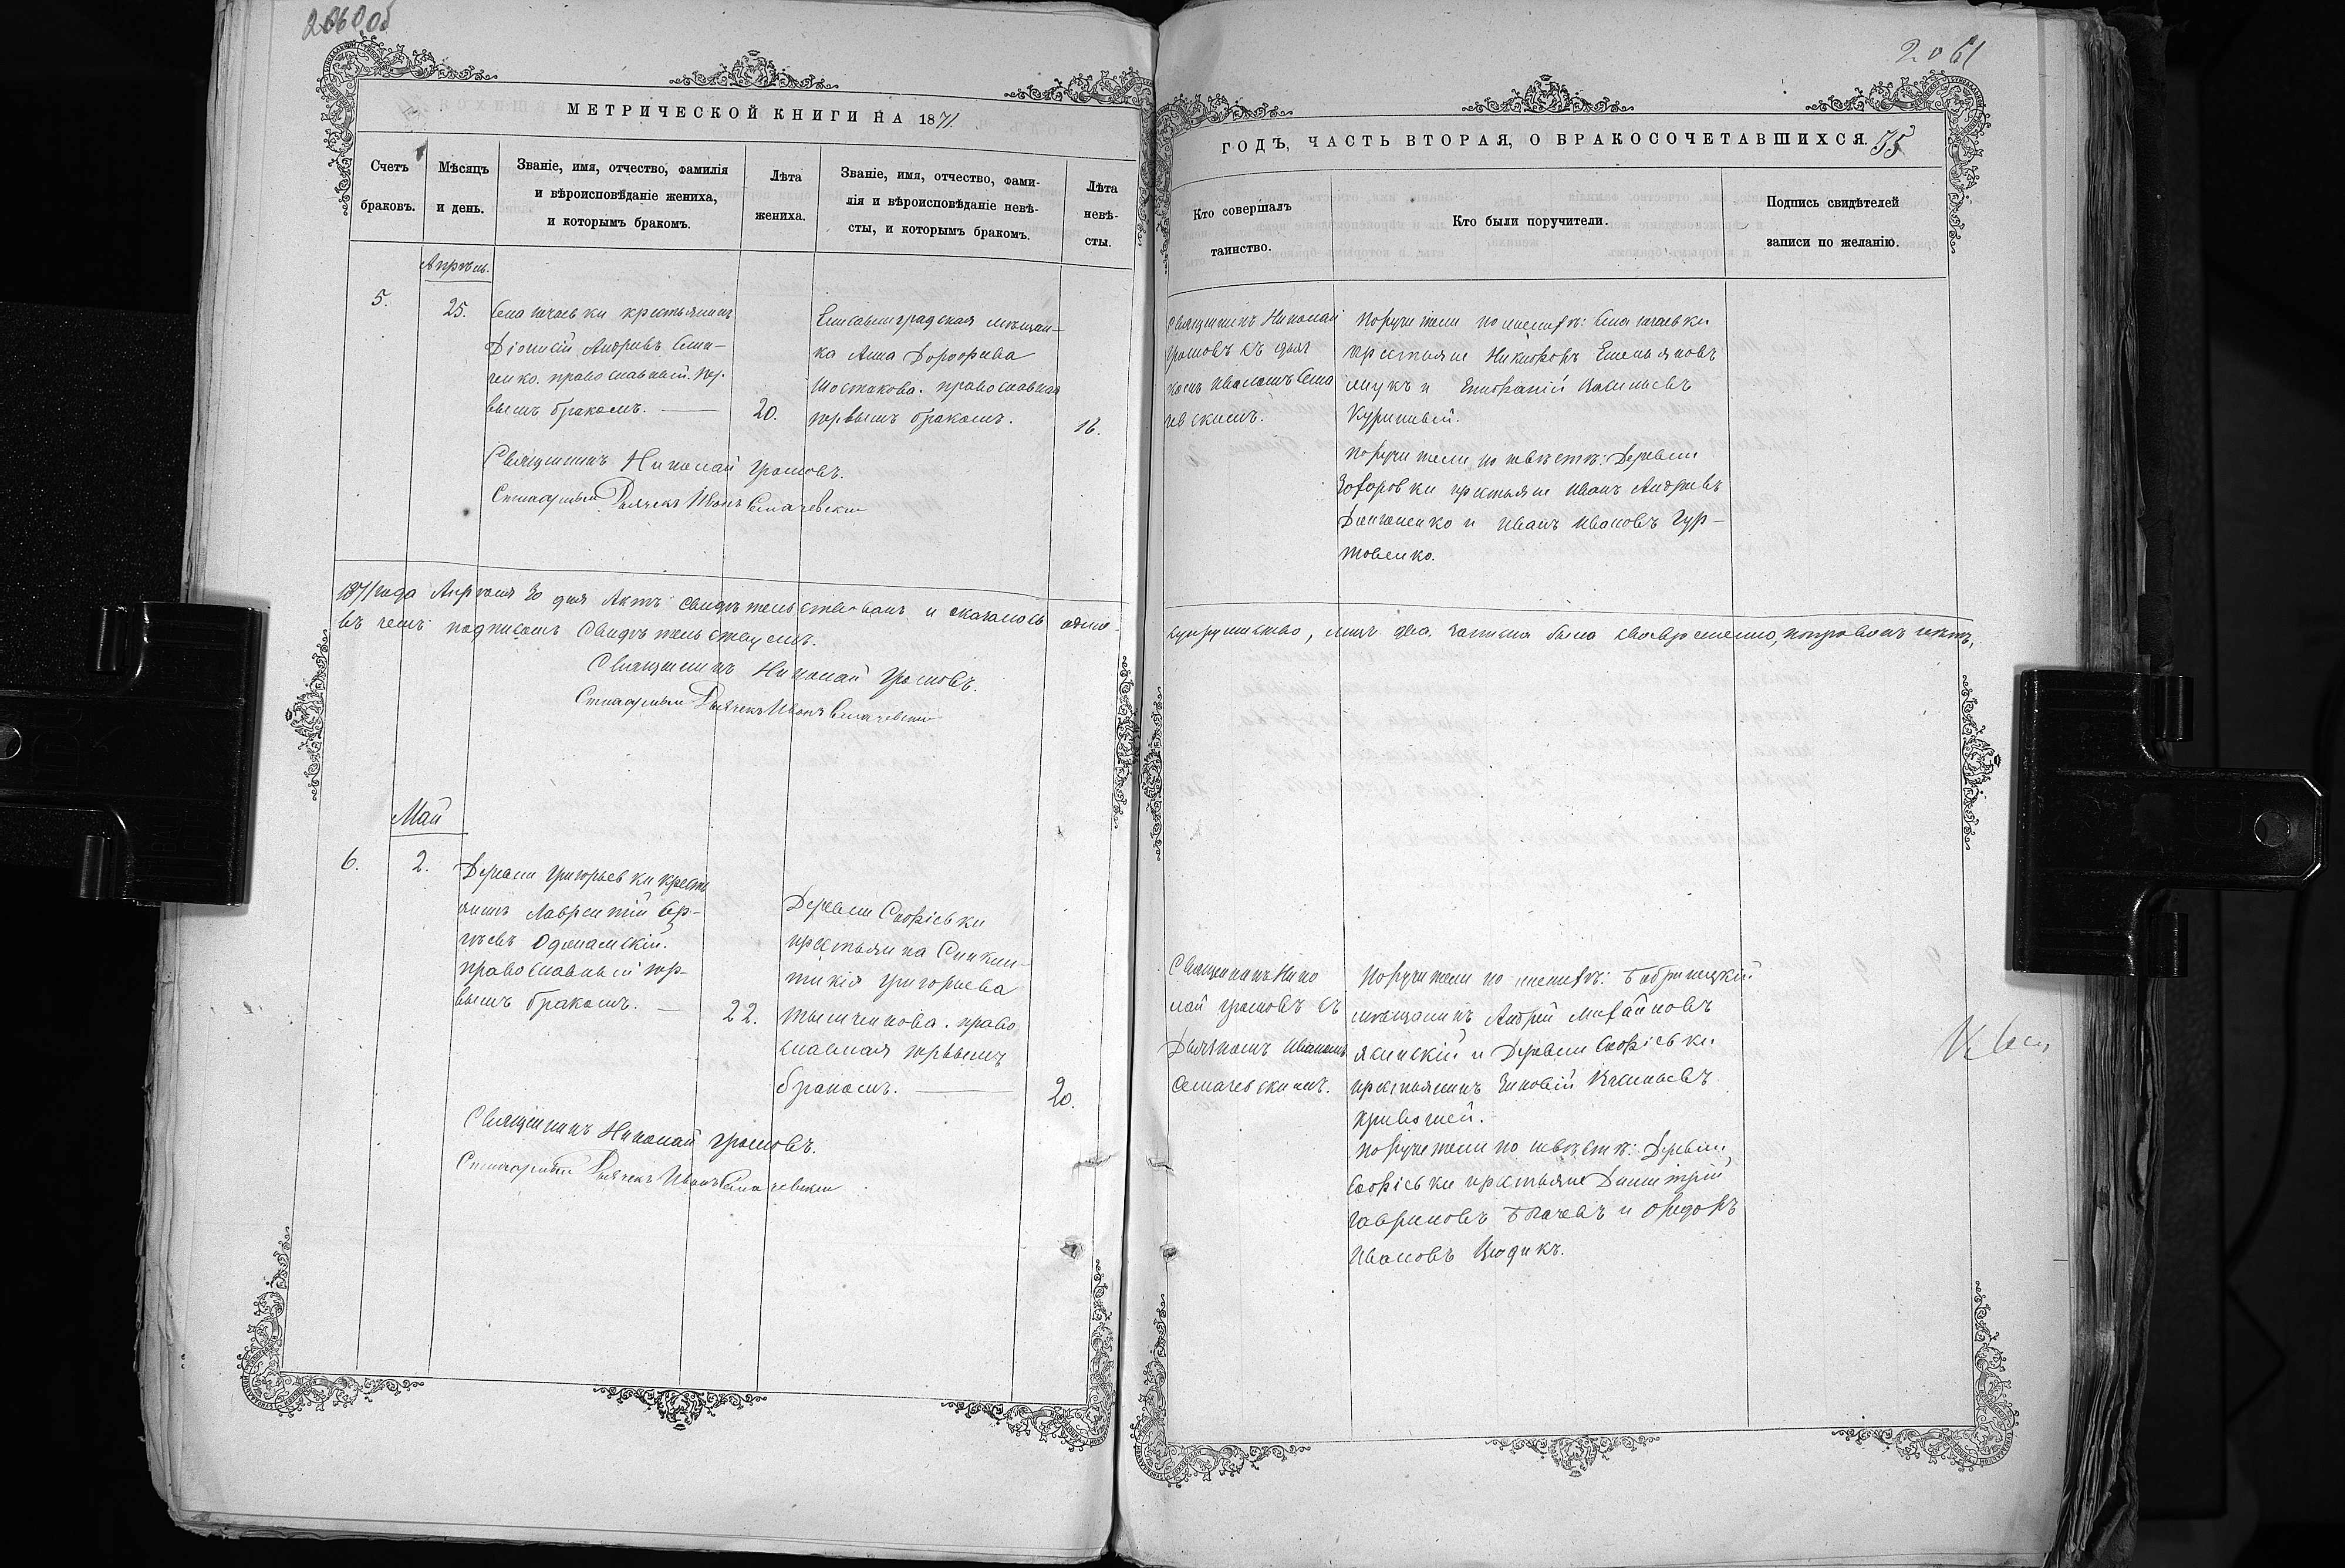 2060 об
МЕТРИЧЕСКОЙ КНИГИ НА 1871
Счетъ
браковъ.
Мѣсяцъ
и день.
Званіе, имя, отчество, фамилія
и вѣроисповѣданіе жениха,
и которымъ бракомъ.
Лѣта
жениха.
Званіе, имя, отчество, фами-
лія и вѣроисповѣданіе невѣ-
сты, и которымъ бракомъ.
Лѣта
невѣ-
сты.
Апрѣль.
5.
25.
крестьянинъ
Діонисій Андреевъ
православный. пер-
вымъ бракомъ.
20.
Елисаветградская мѣщан-
ка Анна Дорофеева
Шостакова. православная
первымъ бракомъ.
16.
Священникъ Николай Громовъ.
Дьячекъ Иванъ Семачевскій
1871 года Апрѣля 30 дня Актъ свидѣтельствованъ и оказалось
въ чемъ подписомъ свидѣтельствуемъ.
Священникъ Николай Громовъ.
Дьячекъ Иванъ Семачевскій
Май
6.
2.
Деревни Григорьевки кресть
янинъ Лаврентій Сер-
гѣевъ
православный пер-
вымъ бракомъ.
22.
Деревни Софіевки
крестьянка Синкли-
тикія Григорьева
право
славная первымъ
бракомъ.
20.
Священникъ Николай Громовъ.
Дьячекъ Иванъ Семачевскій
2061
ГОДЪ, ЧАСТЬ ВТОРАЯ, О БРАКОСОЧЕТАВШИХСЯ.
55
Кто совершалъ
таинство.
Кто были поручители.
Подпись свидѣтелей
записи по желанію.
Священникъ Николай
Громовъ съ дьяч
комъ Иваномъ Сема
чевскимъ.
Поручители по женихѣ:
крестьяне Никифоръ Емельяновъ
и Епифаній Васильевъ
Поручители по невѣстѣ: Деревни
крестьяне Иванъ Андреевъ
и Иванъ Ивановъ Гур-
товенко.
супружество, лицъ два. запись была своевременно,
Священникъ Нико
лай Громовъ съ
Дьячкомъ Иваномъ
Семачевскимъ.
Поручители по женихѣ: Бобринецкій
мѣщанинъ Андрей Михайловъ
Ясинскій и Деревни Софіевки
крестьянинъ Зиновій Васильевъ
Поручители по невѣстѣ: Деревни
Софіевки крестьяне Димитрій
Гавриловъ и Федоръ
Ивановъ